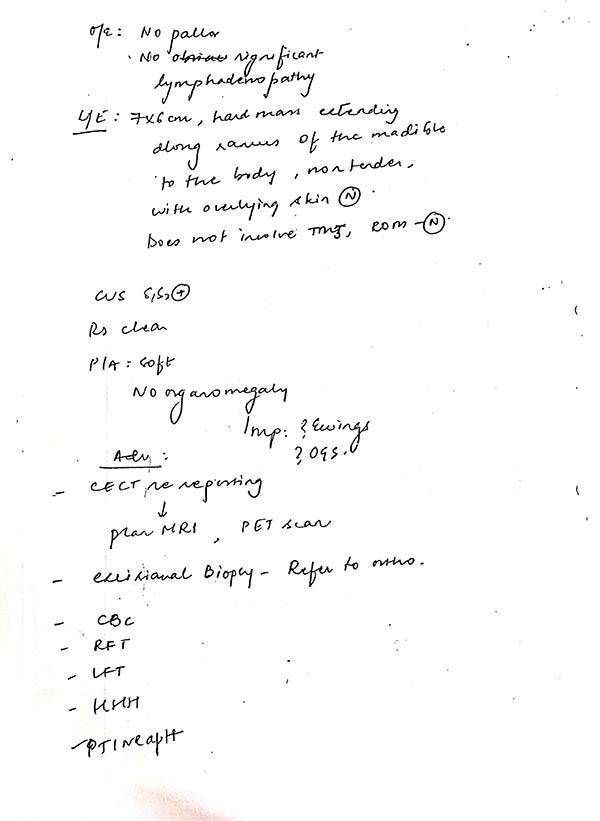 O/E: No pallor
. No obvious significant
lymphadenopathy
L/E: 7x6cm, hard mass extending
along ramus of the madible
to the body, non tender,
with overlying skin (N).
Does not involve TMJ, ROM - (N).
CVS S1S2 (+)
Rs clear
P/A: soft
No organomegaly
Imp: ? Ewings
? OGS.
Adv:
- CECT, re reporting
↓
plan MRI, PET scan
- Biopsy - Refer to ortho.
- CBC
- RFT
- LFT
- HHH
- PTINR aptt